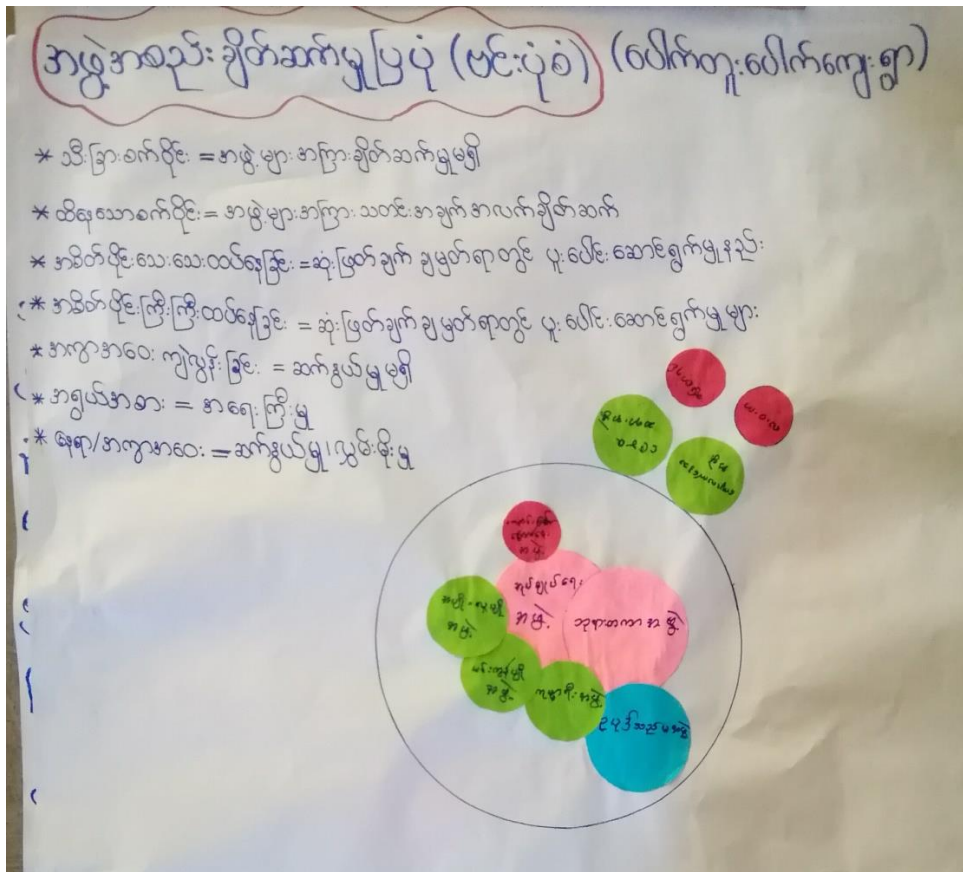 အဖွဲ့အစည်းချိတ်ဆက်မှုပြပုံ (ဗင်းပုံစံ) (ပေါက်တူးပေါက်ကျေးရွာ)
* သီးခြားစက်ဝိုင်း = အဖွဲ့များအကြားချိတ်ဆက်မှုမရှိ
* ထိနေသောစက်ဝိုင်း = အဖွဲ့များအကြား သတင်းအချက်အလက်ချိတ်ဆက်
* အစိတ်ပိုင်းသေးသေးထပ်နေခြင်း = ဆုံးဖြတ်ချက် ချမှတ်ရာတွင် ပူးပေါင်းဆောင်ရွက်မှုနည်း
* အစိတ်ပိုင်းကြီးကြီးထပ်နေခြင်း = ဆုံးဖြတ်ချက်ချမှတ်ရာတွင် ပူးပေါင်းဆောင်ရွက်မှုများ
* အကွာအဝေး ကျဲလွန်းခြင်း = ဆက်နွယ်မှုမရှိ
* အရွယ်အစား = အရေးကြီးမှု
* နေရာ/အကွာအဝေး = ဆက်နွယ်မှု၊လွှမ်းမိုးမှု
အဖွဲ့
အုပ်ချုပ်ရေး
အဖွဲ့
ဘုရားတကာအဖွဲ့
အဖွဲ့
အဖွဲ့
အဖွဲ့